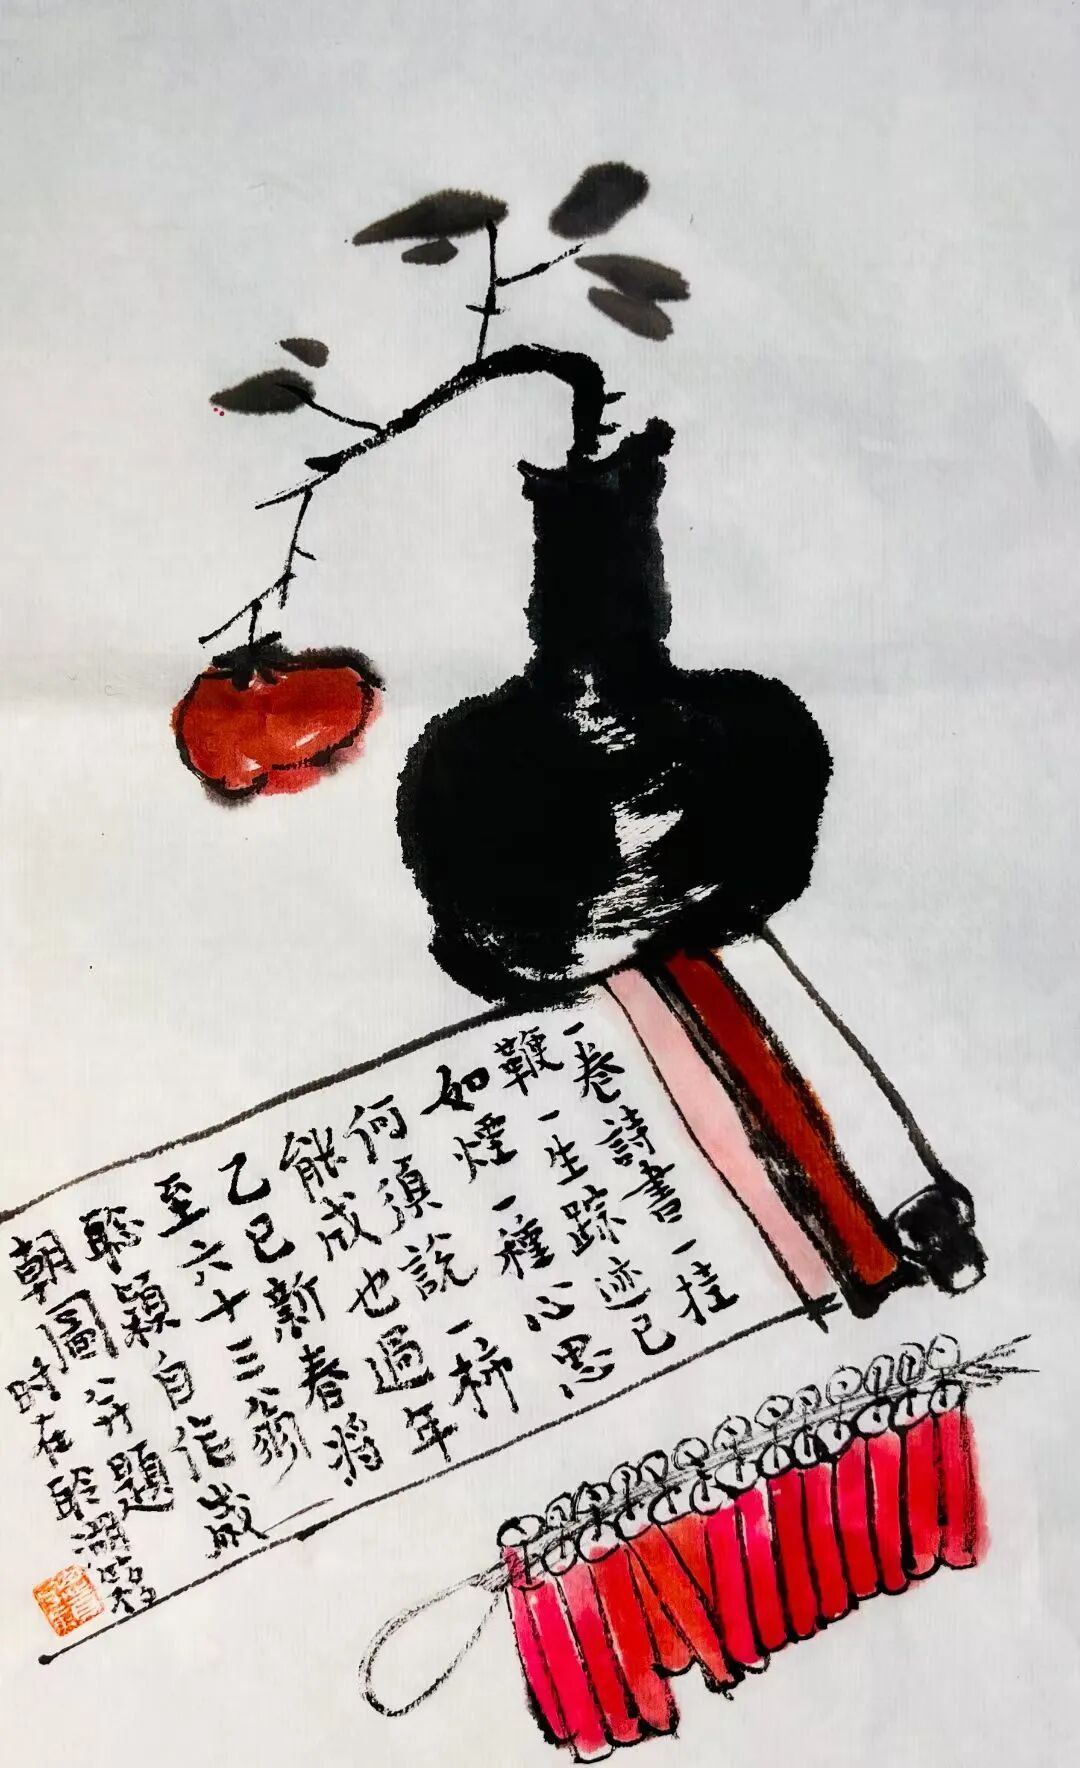 一卷詩書一挂
鞭一生踪迹已
如煙一種心思
何須說一柿
能成也過年
乙巳新春將
至六十三翁
聆穎自作歲
朝圖并題
时在聆湖